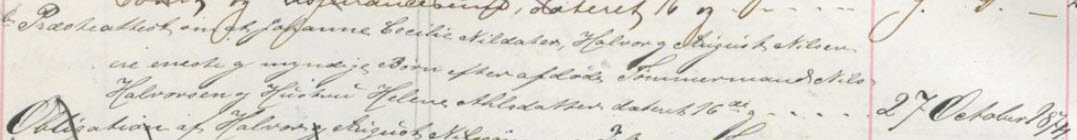 og dateret 16 og - - - -
Præsteattest om at Johanne Cecilie Nilsdatter, Halvor og August Nilsen
ere eneste og myndige Børn efter afdøde Tømmermand Nils
Halvorsen og Hustru Helene Ahlsdatter dateret 16de og - - - - 27 October 1874
Obligation af Halvor og August Nilssen